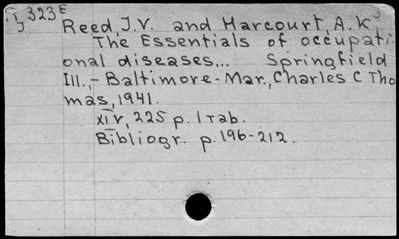 I 323E
J
Reed, J.V. and Harcourt, A.K
The Essentials of occupati-
onal diseases... Springfield
Ill., - Baltimore - Mar., Charles C Tho
mas, 1941.
XIV, 225 p. 1 Tab.
Bibliogr. p. 196-212.